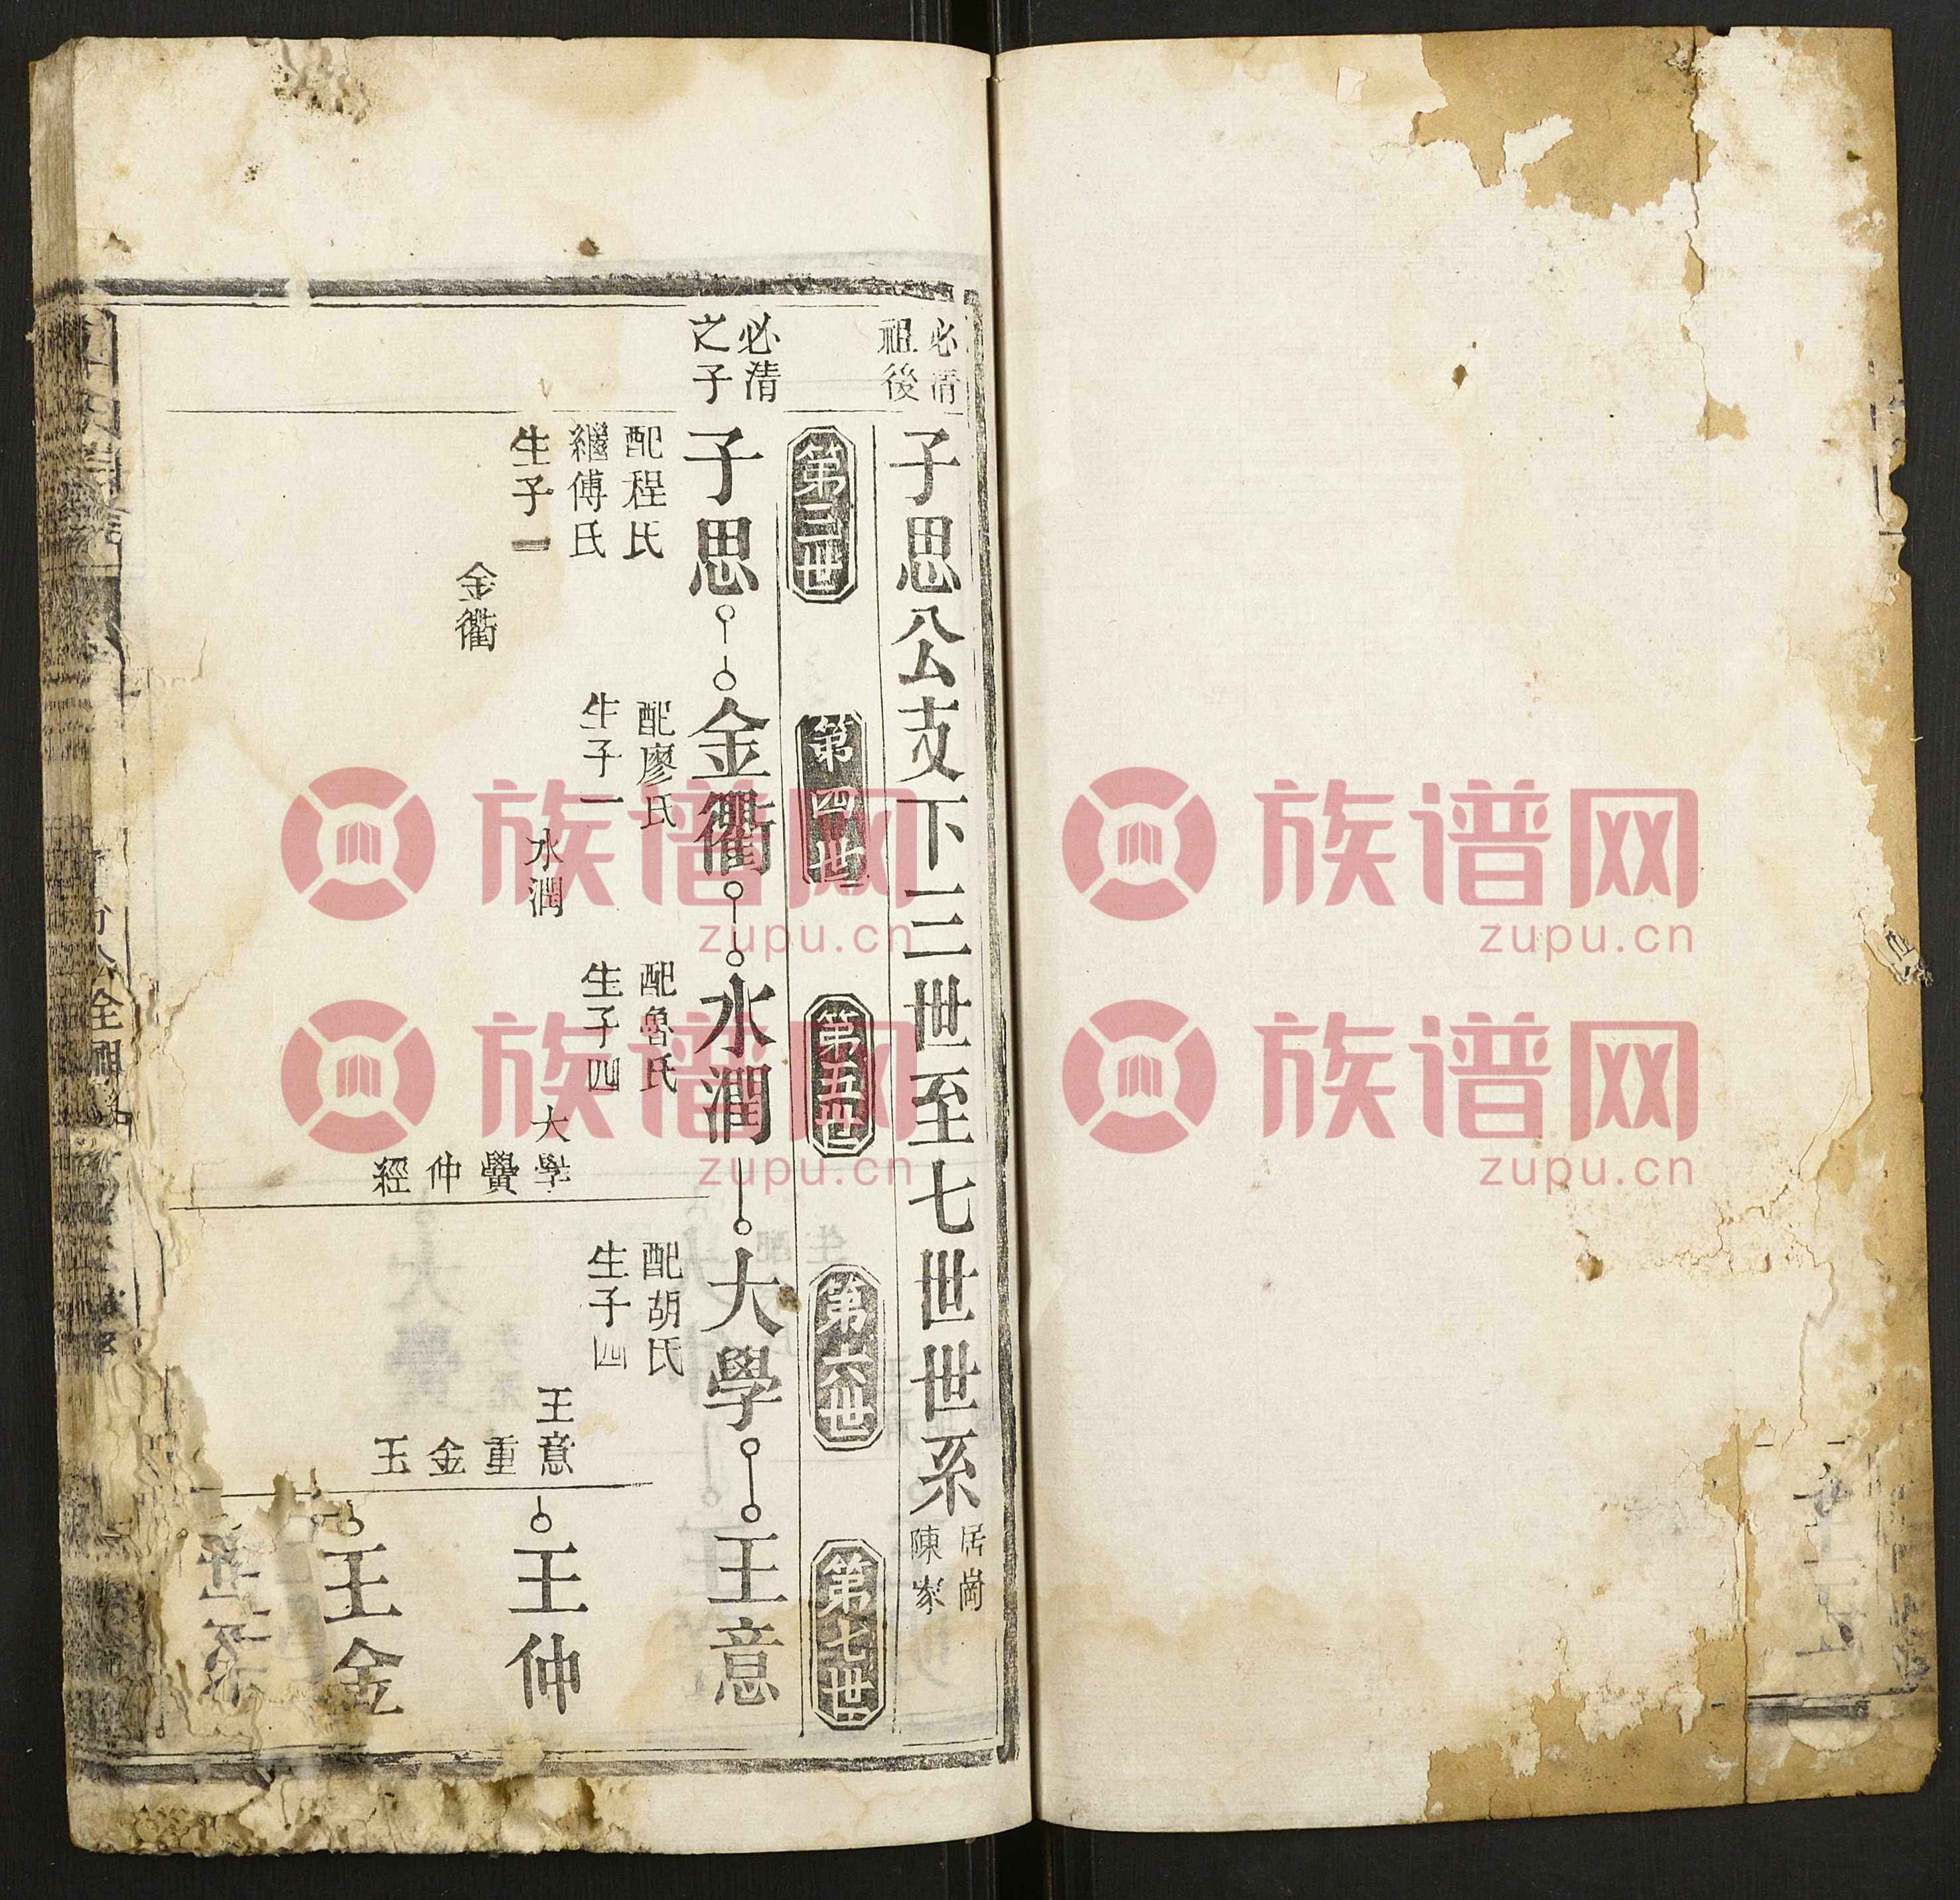 必清
祖後
子思公支下三世至七世世系
居崗
陳家
第三世
第四世
第五世
第六世
第七世
必清
之子
子思
金衢
水潤
大學
王意
配程氏
繼傅氏
生子一
金衢
配廖氏
生子一
水潤
配魯氏
生子四
大學
仲
經
配胡氏
生子四
王意
重
金
玉
王仲
王金
族谱网
zupu.cn
族谱网
zupu.cn
族谱网
zupu.cn
族谱网
zupu.cn